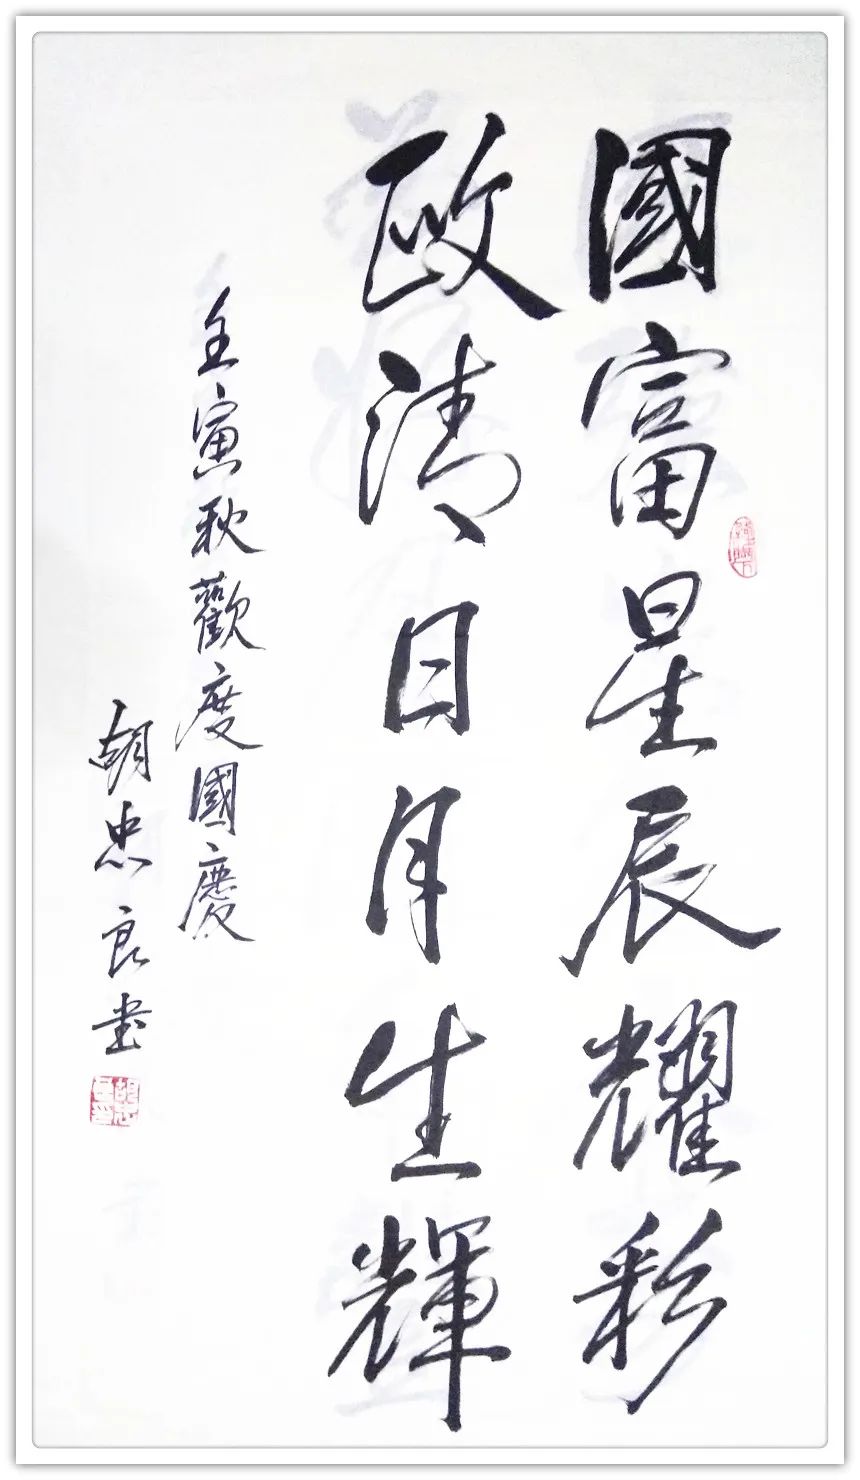 國富星辰耀彩
政清日月生輝
壬寅秋歡度國慶
胡忠良書
胡忠良印